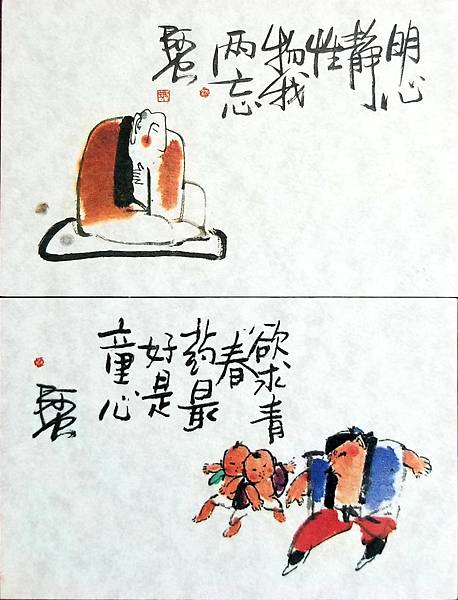 明心
静
性
物我
两忘
欲求青
春
药最
好是
童心